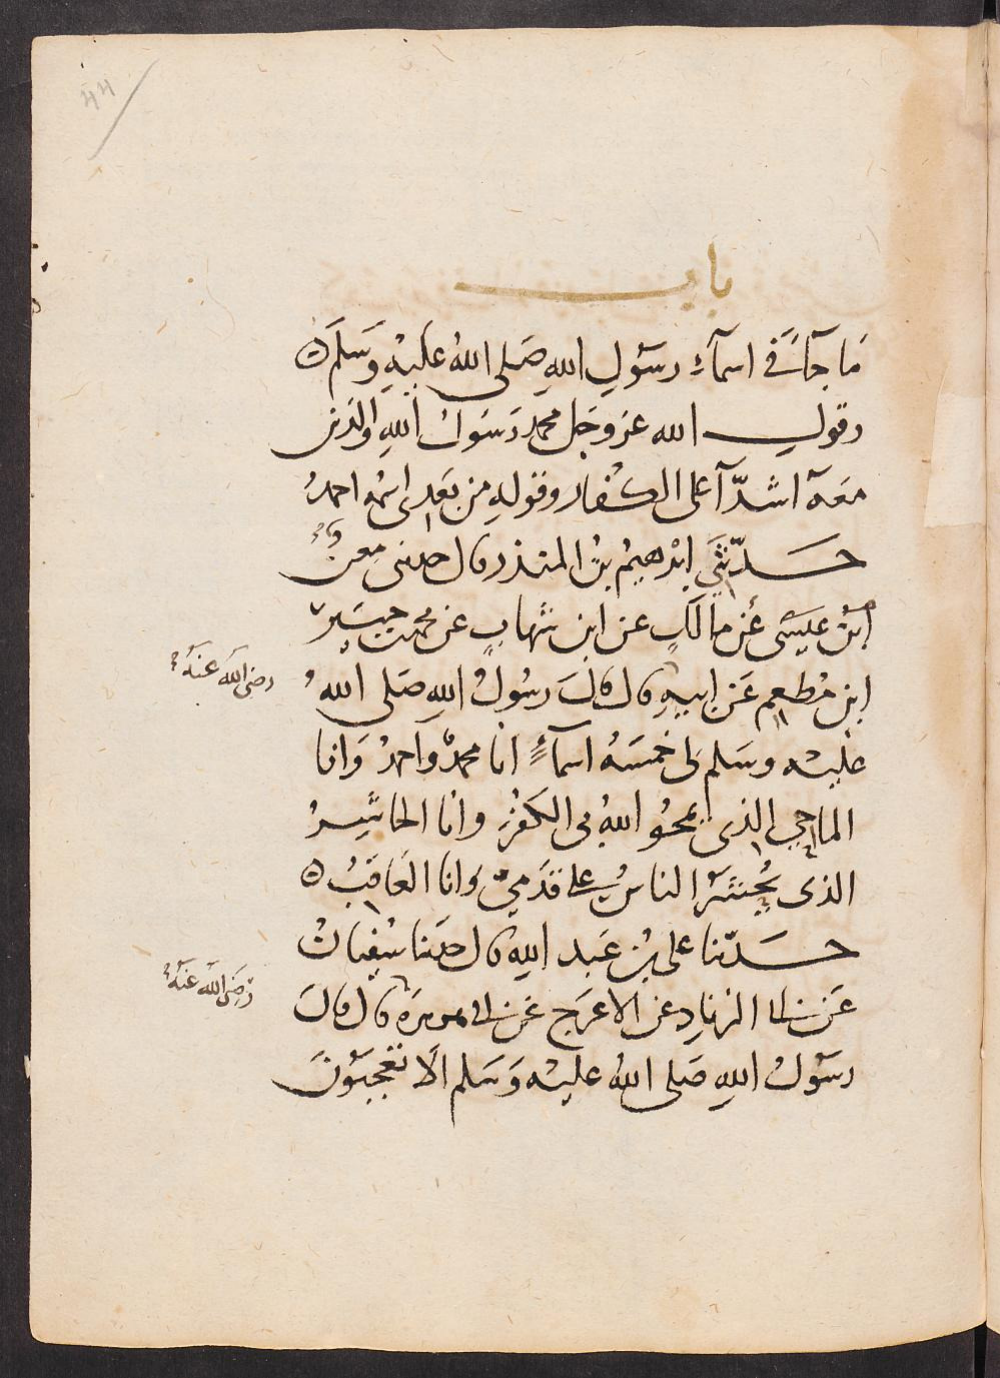 44
باب
مَا جَآءَ في اسمآء رسَوُلِ اللهِ صَلى اللهُ عَلَيْهِ وَسَلمَ ه
وقول الله عز وجل محمد رَسَوُلُ اللهِ والذين
معَهٓ اشدّآ على الكُفار وقولِهِ من بَعدِى اسْمُه احمدُ
حَدّثَنِي ابْرهيمُ بنُ المنذر قال حدثنى مَعنُ
ابْنُ عِيسَى عَن مالَكٍ عن ابن شهابٍ عَن محمد بن جبَيرِ
ابنِ مُطعِمٍ عَن ابيهِ قال قالَ رسُولُ اللهِ صَلى اللهُ
رضى الله عَنهُ
عَليْه وسَلم لى خمسَةُ اسمآءٍ انا محمدٌ واحمدُ وَانا
الماحِي الذى يمحُو اللهُ بى الكفرَ وانا الحاشِرُ
الذى يُحشَرُ الناسُ على قدَمِي وَانا العَاقبُ ه
حَدّثنا على بنُ عَبد اللهِ قال حدثنا سُفيانُ
عَن ابى الزنادِ عن الاعرَجِ عَن ابى هريرَة قال قالَ
رَضىَ الله عَنهُ
رسَوُلُ اللهِ صَلى اللهُ عليْه وَسَلم ألَا تعْجبَوُنَ